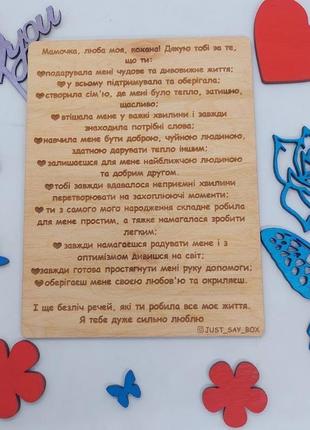 you
Мамочка, люба моя, кохана! Дякую тобі за те,
що ти:
подарувала мені чудове та дивовижне життя;
у всьому підтримувала та оберігала;
створила сім'ю, де мені було тепло, затишно,
щасливо;
втішала мене у важкі хвилини і завжди
знаходила потрібні слова;
навчила мене бути доброю, чуйною людиною,
здатною дарувати тепло іншим;
залишаєшся для мене найближчою людиною
та добрим другом.
тобі завжди вдавалося неприємні хвилини
перетворювати на захоплюючі моменти;
ти з самого мого народження складне робила
для мене простим, а тяжке намагалася зробити
легким;
завжди намагаєшся радувати мене і з
оптимізмом дивишся на світ;
завжди готова простягнути мені руку допомоги;
оберігаєш мене своєю любов'ю та окриляєш.
І ще безліч речей, які ти робила все моє життя.
Я тебе дуже сильно люблю
JUST_SAY_BOX